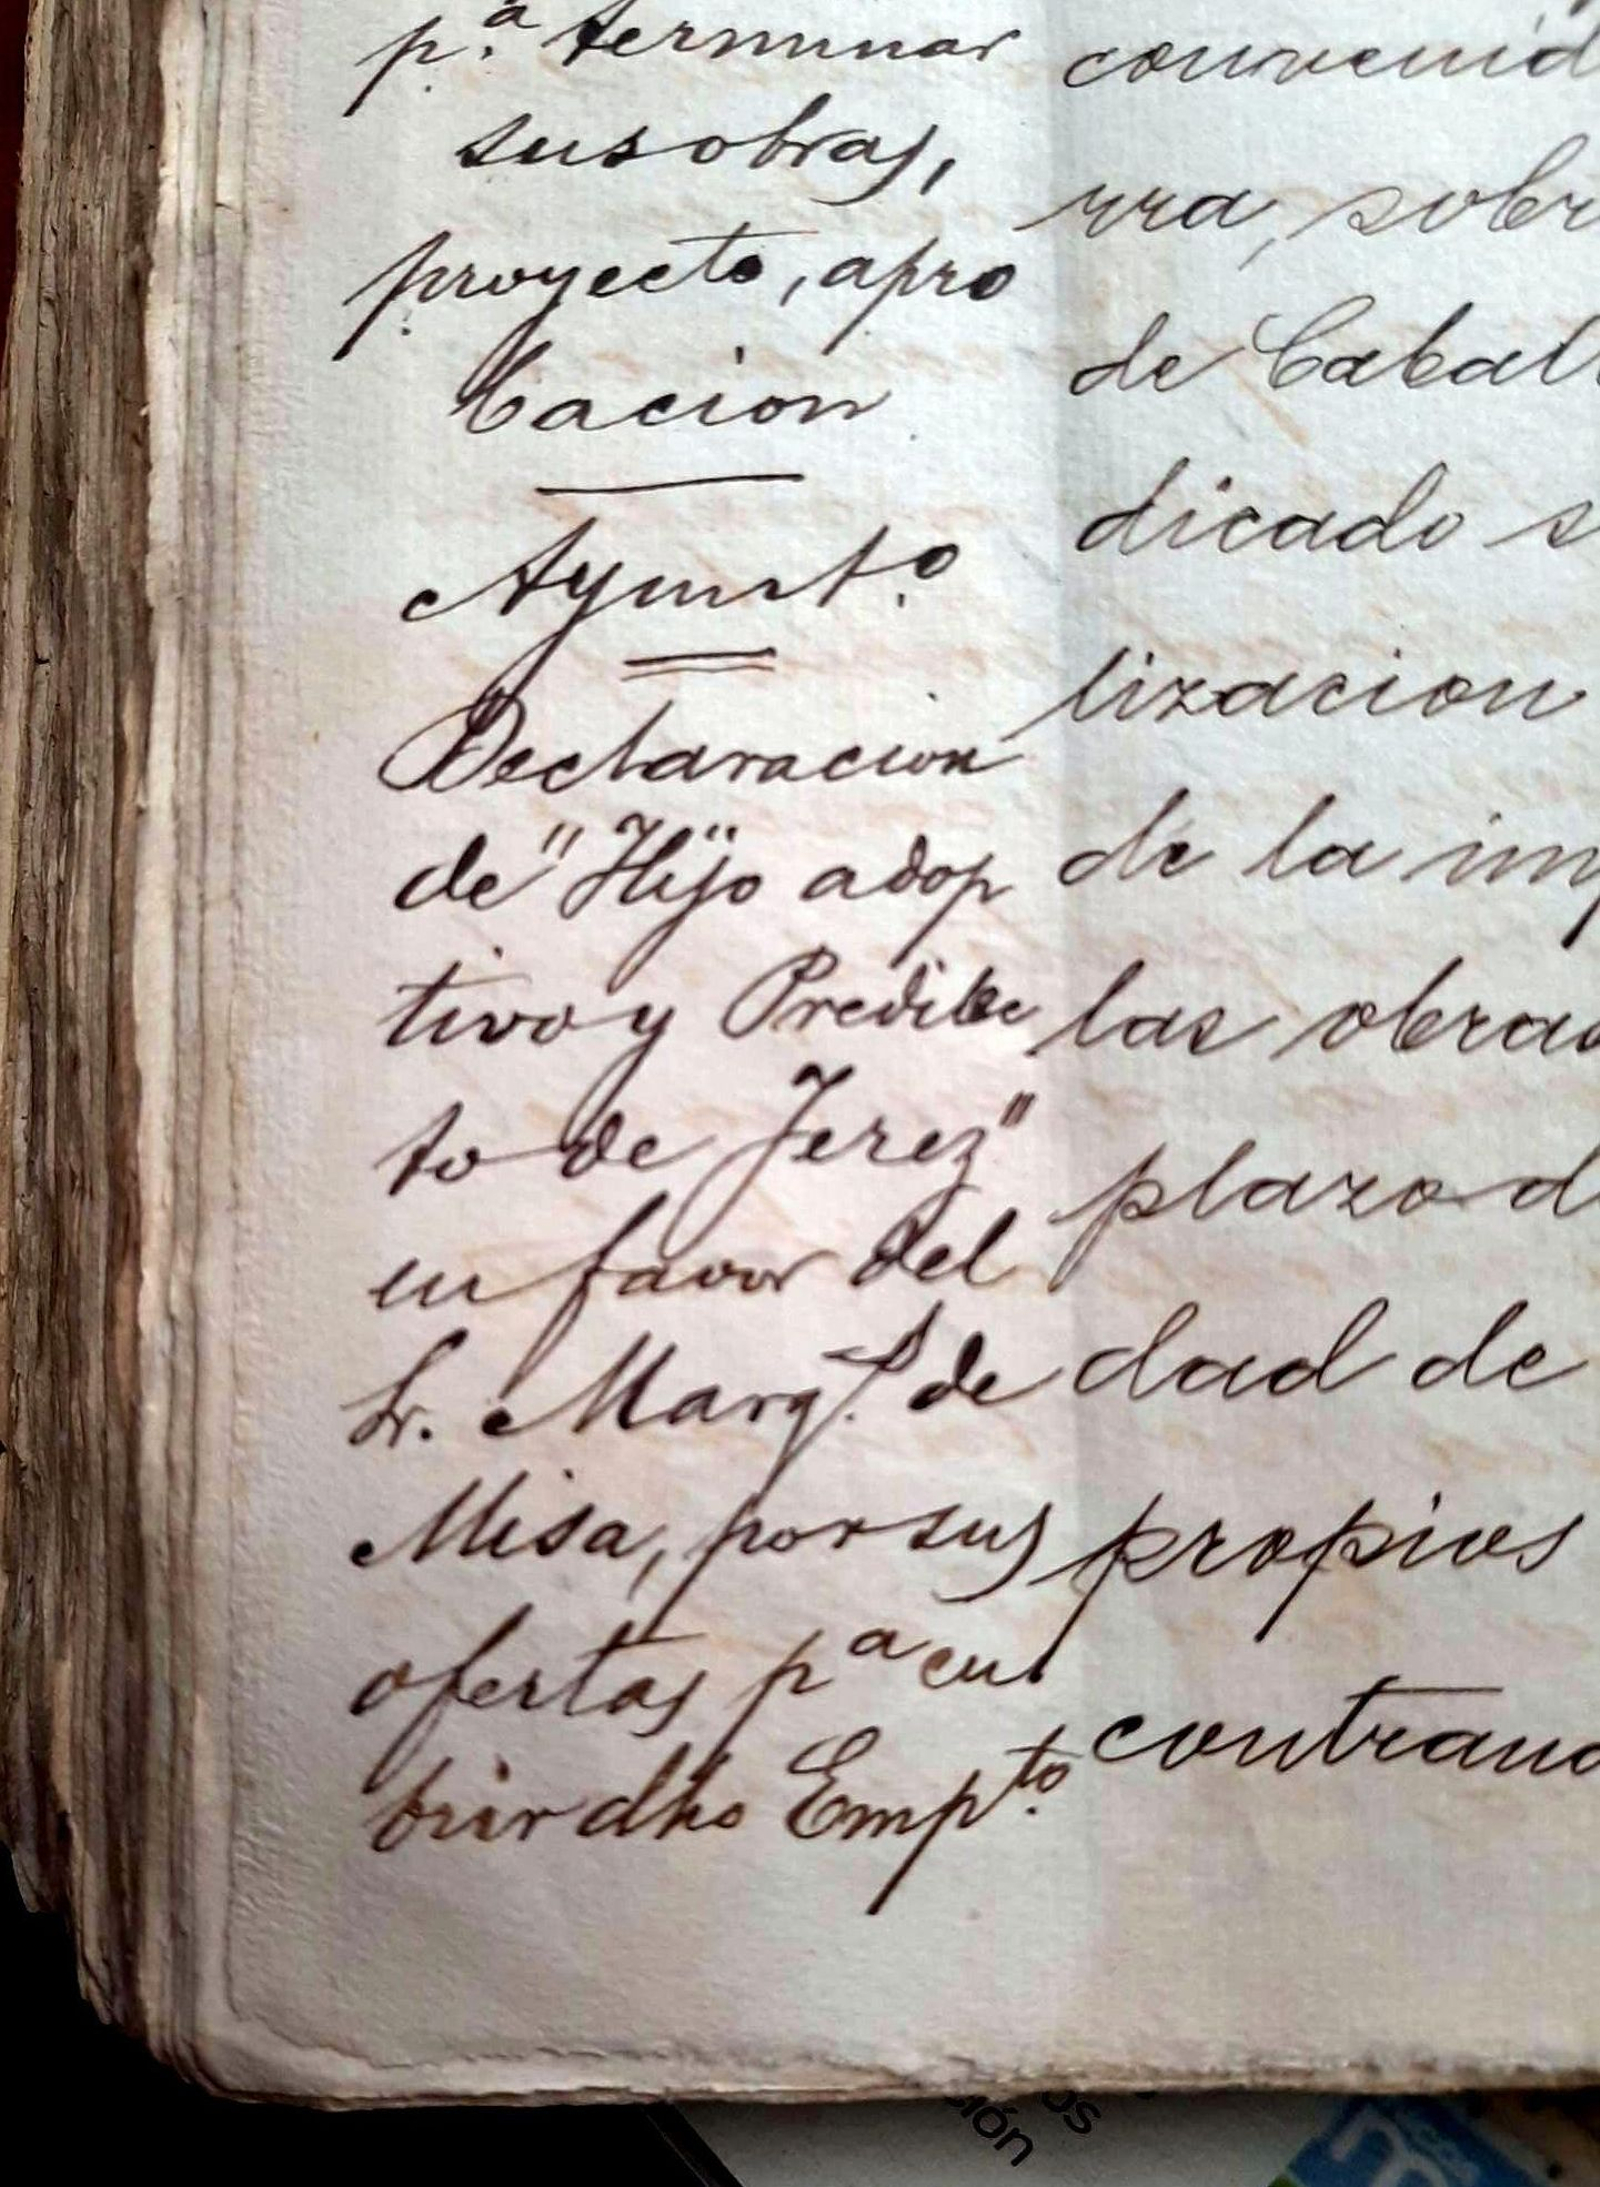 p.ª terminar
sus obras,
proyecto, apro
bacion
Ayunt.º
Declaracion
de "Hijo adop
tivo y Predilec
to de Jerez"
en favor del
Sr. Marq.s de
Misa, por sus
ofertas pª cu
brir dho Emp.to
convenid
rra, sobr
de Caball
dicado s
lizacion
de la imp
las obras
plazo d
dad de
propios
contrand
ción
os